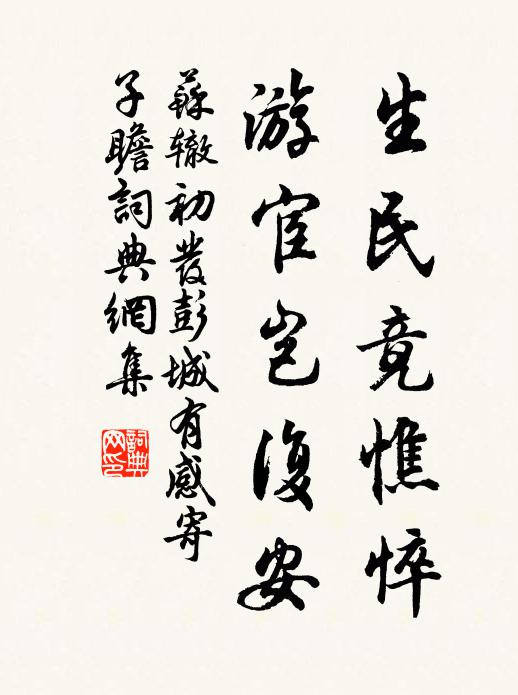 生民竟憔悴
游宦岂復安
蘇辙初發彭城有感寄
子瞻詞典網集
詞典
网印